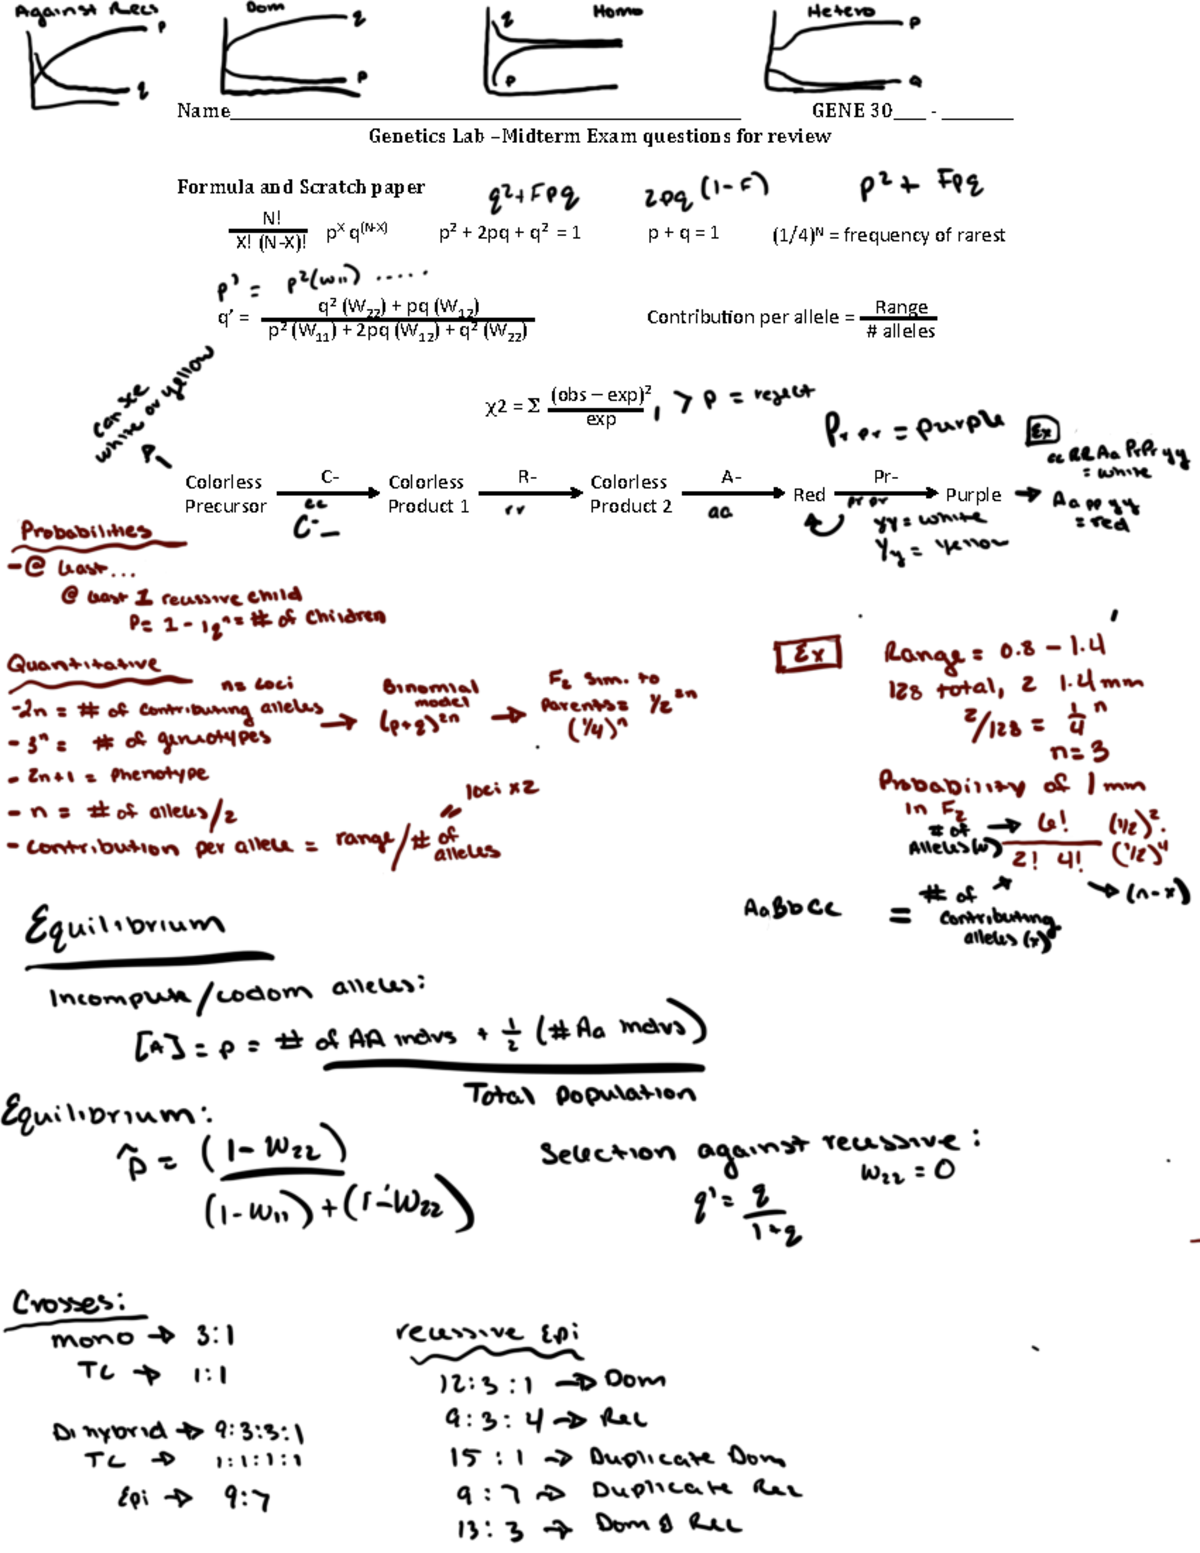 Against Recs
p
q
Dom
q
p
Homo
q
p
Hetero
p
q
Name____________ GENE 30___ - _______
Genetics Lab –Midterm Exam questions for review
Formula and Scratch paper
q² + Fpq 2pq (1-F) p² + Fpq
N!
X! (N-X)!
p^X q^(N-X) p² + 2pq + q² = 1 p + q = 1 (1/4)^N = frequency of rarest
p' = p²(w11) .....
q' = q² (W22) + pq (W12)
p² (W11) + 2pq (W12) + q² (W22)
Contribution per allele = Range
# alleles
can see
white or yellow
χ2 = Σ (obs – exp)²
exp
, > p = reject
Pr pr = purple
Ex
cc RR Aa PrPr yy
= white
Colorless Precursor
C-
cc
C-
Colorless Product 1
R-
rr
Colorless Product 2
A-
aa
Red
Pr-
pr pr
Purple
yy = white
Yy = yellow
Aa pp yy
= red
Probabilities
- @ least...
@ least 1 recessive child
P = 1 - 1q^n = # of children
Quantitative
n = loci
- 2n = # of contributing alleles
- 3^n = # of genotypes
- 2n+1 = phenotype
- n = # of alleles/2
- contribution per allele = range/# of alleles
= loci x2
Binomial model
(p+q)^2n
F2 sim. to
Parents = 1/2^2n
(1/4)^n
Ex
Range = 0.8 - 1.4
128 total, 2 1.4 mm
2/128 = 1/4^n
n = 3
Probability of 1mm
in F2
# of
Alleles (N)
6!
2! 4!
(1/2)² .
(1/2)^4
(n-x)
AaBbCc = # of
contributing
alleles (x)
Equilibrium
Incomplete/codom alleles:
[A] = p = # of AA indvs + 1/2 (# Aa indvs)
Total population
Equilibrium:
p̂ = (1 - W22)
(1 - W11) + (1 - W22)
Selection against recessive:
W22 = 0
q' = q
1+q
Crosses:
mono → 3:1
TC → 1:1
Dihybrid → 9:3:3:1
TC → 1:1:1:1
Epi → 9:7
recessive Epi
12:3:1 → Dom
9:3:4 → Rec
15:1 → Duplicate Dom
9:7 → Duplicate Rec
13:3 → Dom & Rec